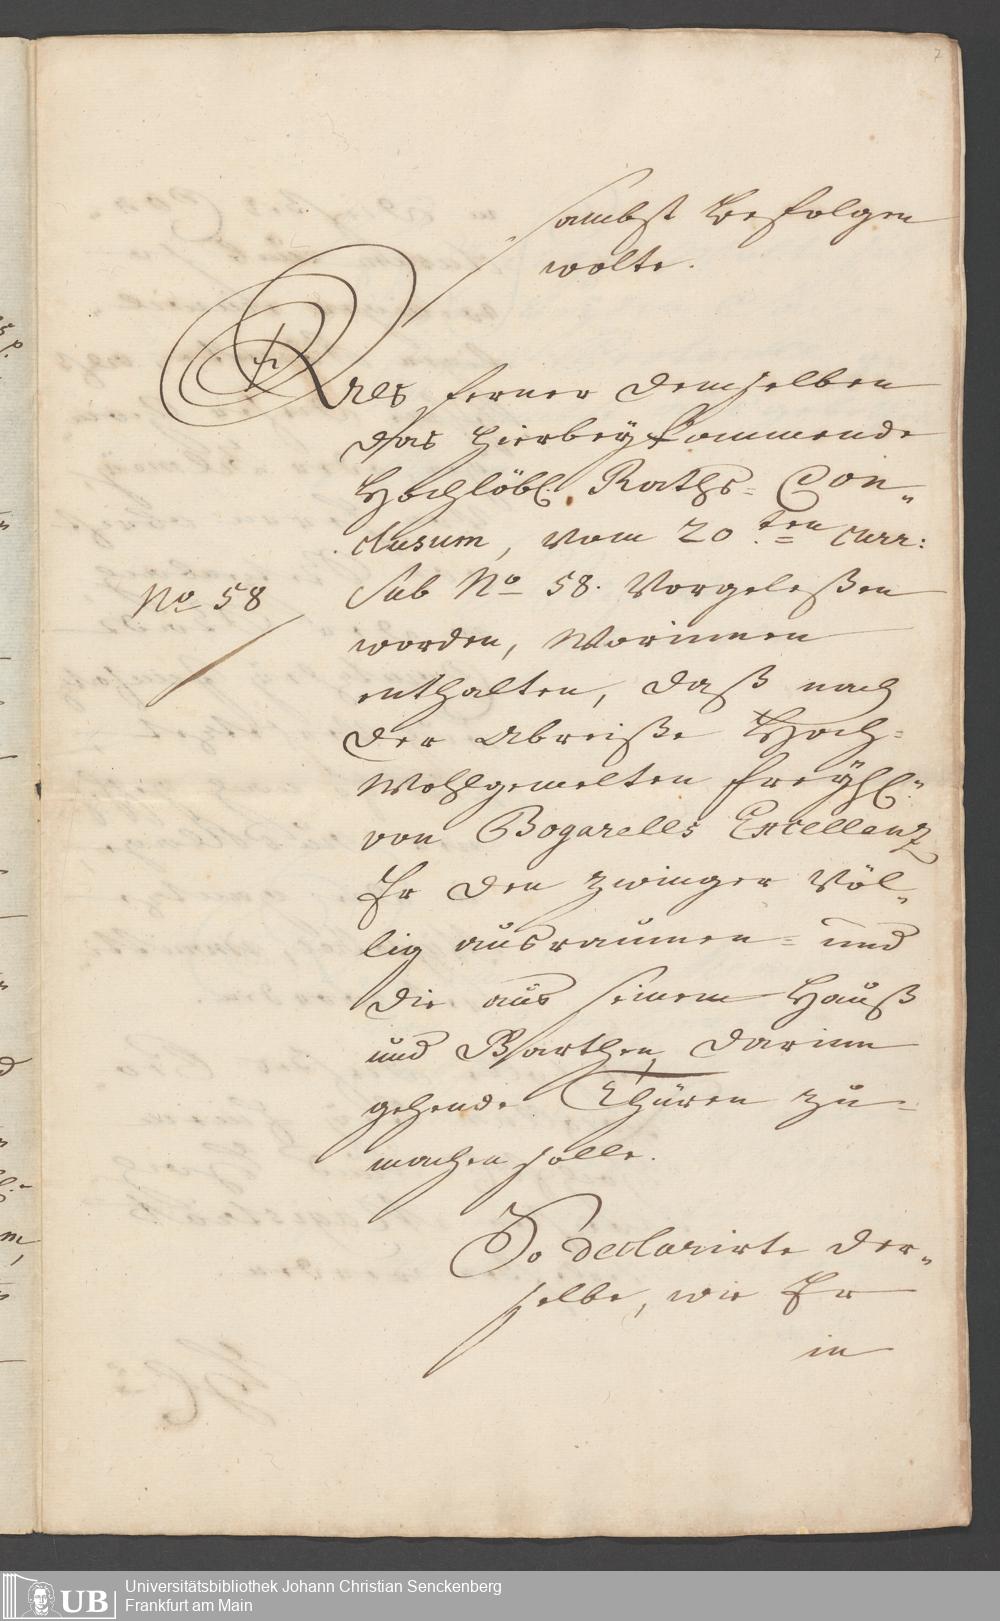 7
sambst befolgen
wolte.
Als ferner demselben
das hierbey kommende
Hochlöbl. Raths- Con„
clusum, vom 20.ten curr:
No 58
sub No 58. Vorgeleßen
worden, Worinnen
enthalten, daß nach
der Abreiße Hoch-
Wohlgemelten freyhl.
von Bogarells Excellenz
Er den zwinger Völ„
lig ausraumen- und
die aus seinem Hauß
und Garthen, darinn
gehende Thüren zu-
machen solle.
So declarirte der„
selbe, wie Er
in
UB
Universitätsbibliothek Johann Christian Senckenberg
Frankfurt am Main